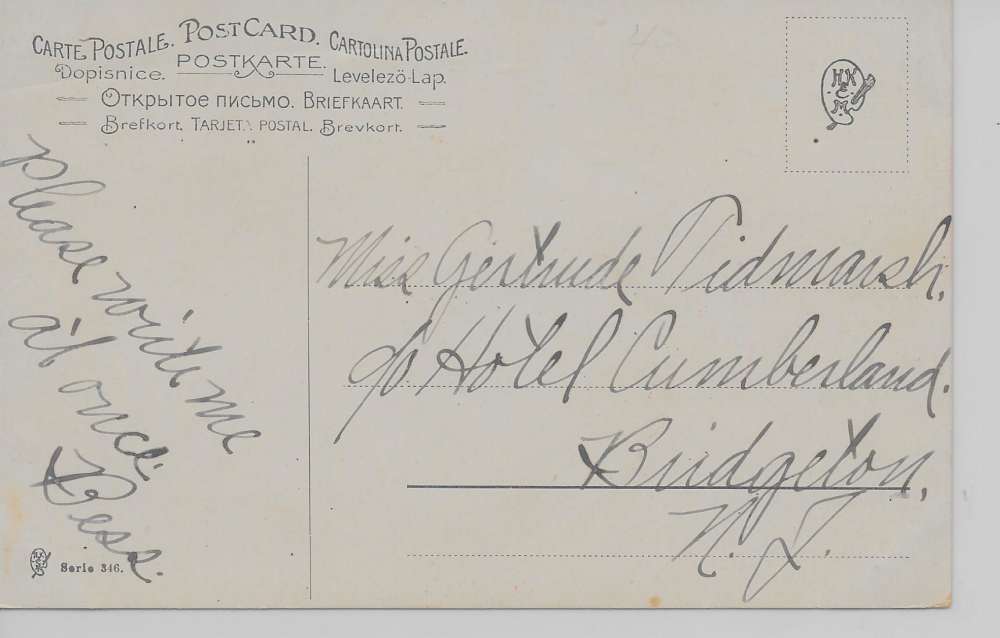 CARTE POSTALE. POSTCARD. CARTOLINA POSTALE.
Dopisnice. POSTKARTE. Levelezö-Lap.
Открытое письмо. BRIEFKAART.
Brefkort. TARJETA POSTAL. Brevkort.
HK
E
M
please write me
at once
Bess.
Miss Gertrude Tidmarsh,
c/o Hotel Cumberland.
Bridgeton,
N. J.
Serie 346.